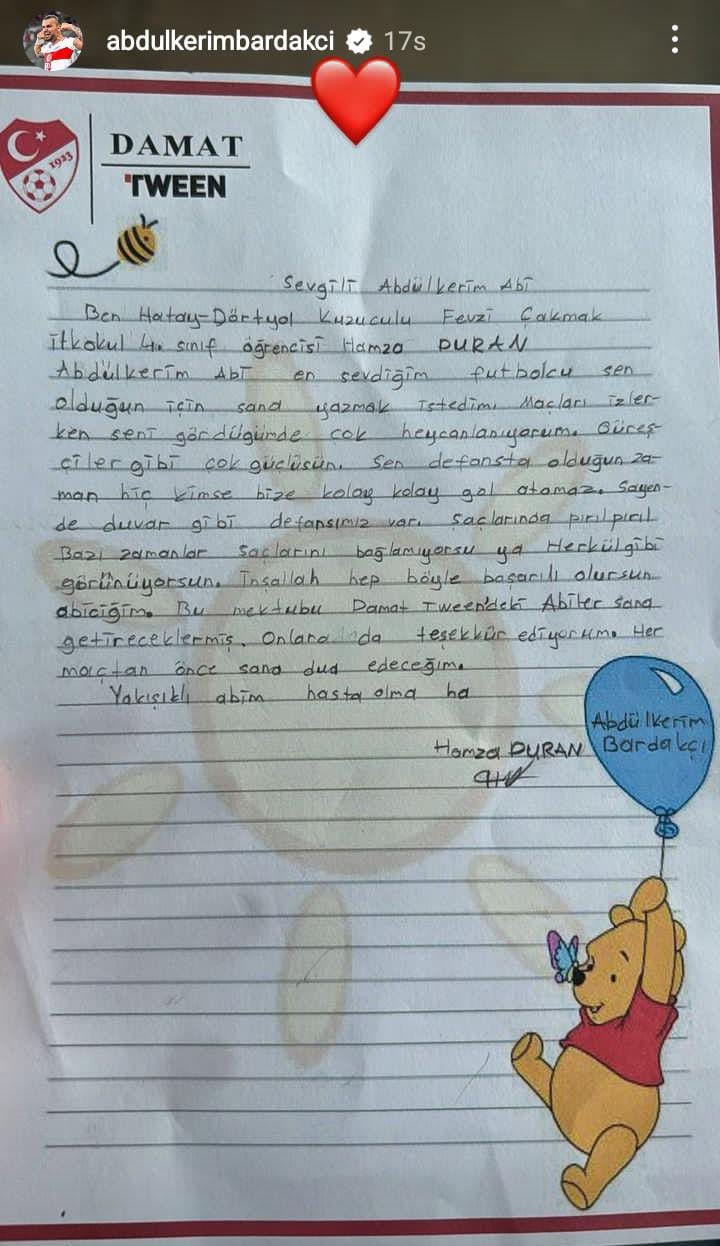 abdulkerimbardakci 17s
1923
DAMAT
TWEEN
Sevgili Abdülkerim Abi
Ben Hatay-Dörtyol Kuzuculu Fevzi Çakmak
ilkokul 4. sınıf öğrencisi Hamza DURAN
Abdülkerim Abi en sevdiğim futbolcu sen
olduğun için sana yazmak istedim. Maçları izler-
ken seni gördüğümde çok heycanlanıyorum. Güreş-
çiler gibi çok güçlüsün. Sen defansta olduğun za-
man hiç kimse bize kolay kolay gol atamaz. Sayen-
de duvar gibi defansımız var. Saçlarında pırılpırıl
Bazı zamanlar saçlarını bağlamıyorsu ya Herkül gibi
görünüyorsun. İnşallah hep böyle başarılı olursun
abiciğim. Bu mektubu Damat Tween'deki Abiler sana
getireceklermiş. Onlara da teşekkür ediyorum. Her
maçtan önce sana dua edeceğim.
Yakışıklı abim hasta olma ha
Hamza DURAN
Abdülkerim
Bardakçı